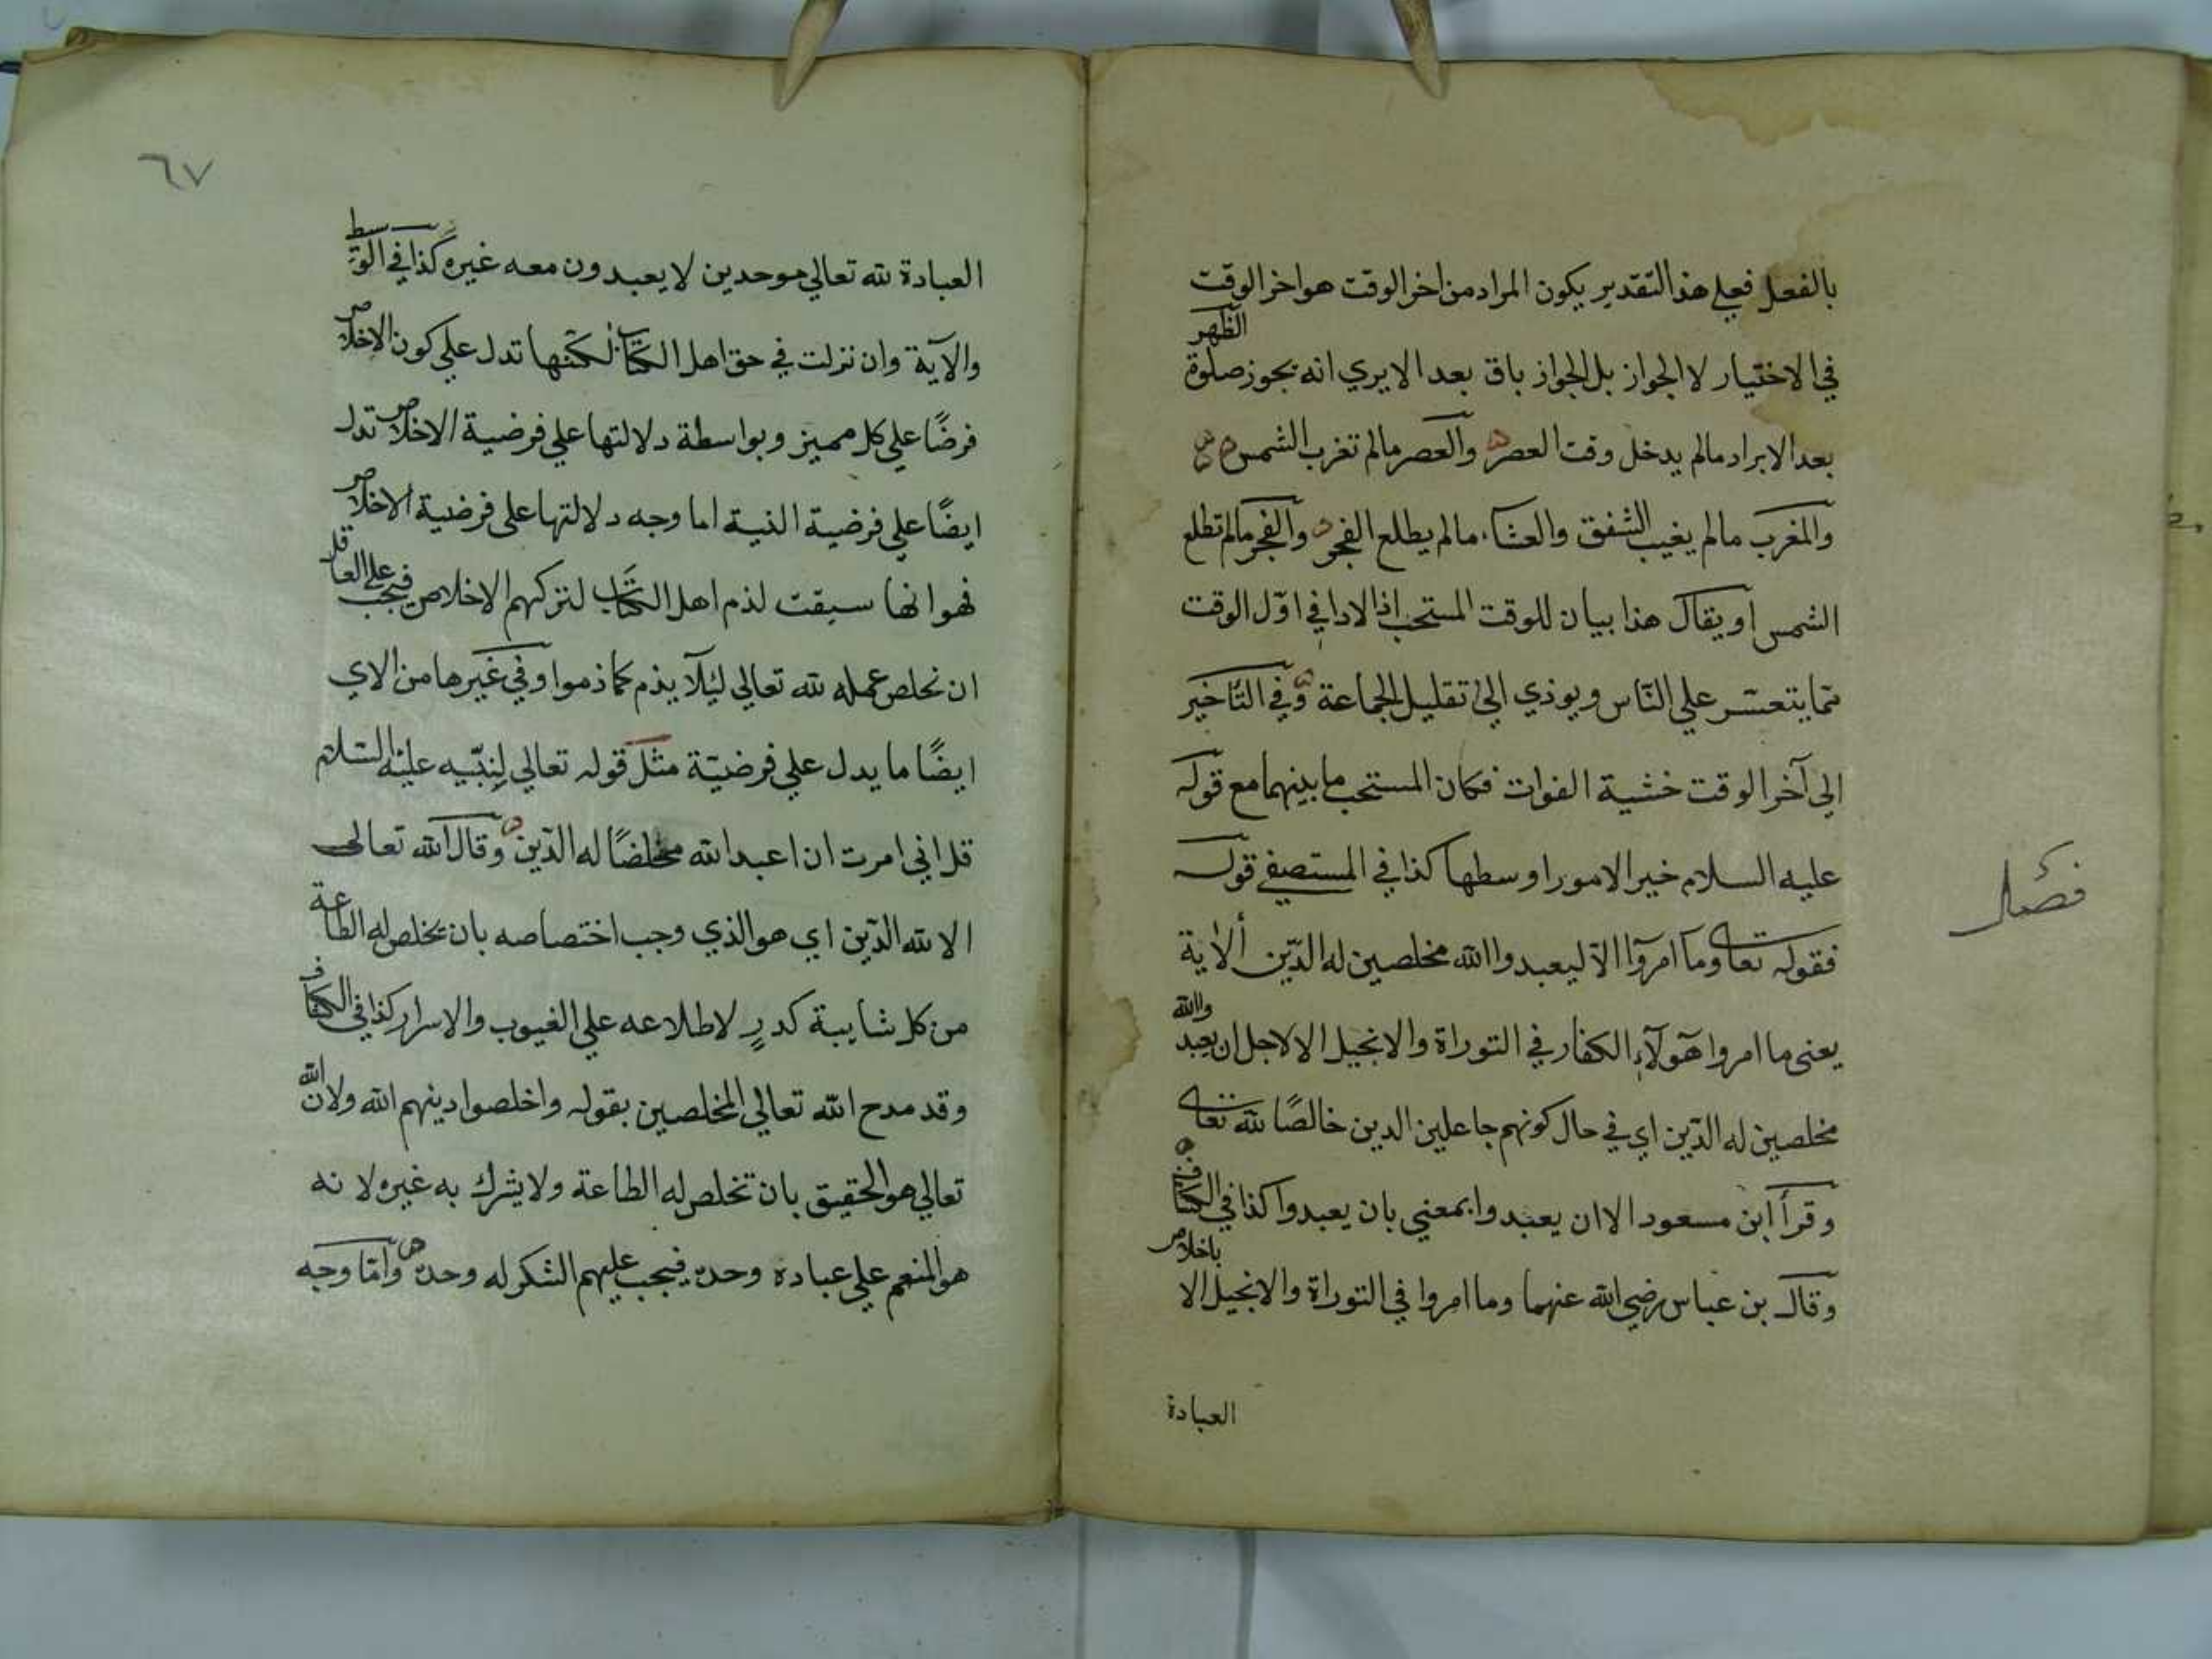 بالفعل فعلي هذا التقدير يكون المراد من اخر الوقت هو اخر الوقت
في الاختيار لا الجواز بل الجواز باق بعد الا يري انه يجوز صلوة الظهر
بعد الابراد مالم يدخل وقت العصر والعصر مالم تغرب الشمس
والمغرب مالم يغيب الشفق والعشاء مالم يطلع الفجر والفجر مالم تطلع
الشمس او يقال هذا بيان للوقت المستحب اذ الادا في اوّل الوقت
مما يتعسر علي النّاس ويوذي الي تقليل الجماعة وفي التّأخير
الي آخر الوقت خشية الفوات فكان المستحب ما بينهما مع قوله
عليه السلام خير الامور اوسطها كذا في المستصفي قوله
فصل
فقوله تعا وما امروا الا ليعبدوا الله مخلصين له الدّين ألاية
يعني ما امروا هٓولآء الكفار في التوراة والانجيل الا لاجل ان يعبدوا الله
مخلصين له الدّين اي في حال كونهم جاعلين الدين خالصًا لله تعا
وقرأ ابن مسعود الا ان يعبدوا بمعني بان يعبدوا كذا في الكشاف
وقال بن عباس رضي الله عنهما وما امروا في التوراة والانجيل الا باخلاص
العبادة
٦٧
العبادة لله تعالي موحدين لا يعبدون معه غيره كذا في الوسيط
والآية وان نزلت في حق اهل الكتاب لكنها تدل علي كون الاخلاص
فرضًا علي كل مميز وبواسطة دلالتها علي فرضية الاخلاص تدل
ايضًا علي فرضية النية اما وجه دلالتها على فرضية الاخلاص
فهو انها سيقت لذم اهل الكتاب لتركهم الاخلاص فيجب علي العاقل
ان نخلص عمله لله تعالي لئلا يذم كما ذموا وفي غيرها من الاي
ايضًا ما يدل علي فرضيّة مثل قوله تعالي لنبّيه عليه السّلام
قل اني امرت ان اعبد الله مخلصًا له الدّين وقال الله تعالى
الا لله الدّين اي هو الذي وجب اختصاصه بان يخلص له الطاعة
من كل شايبة كدرٍ لاطلاعه علي الغيوب والاسرار كذا في الكشاف
وقد مدح الله تعالي المخلصين بقوله واخلصوا دينهم الله ولان الله
تعالي هو الحقيق بان تخلص له الطاعة ولا يشرك به غيره لا نه
هو المنعم علي عباده وحده فيجب عليهم الشكر له وحده وامّا وجه